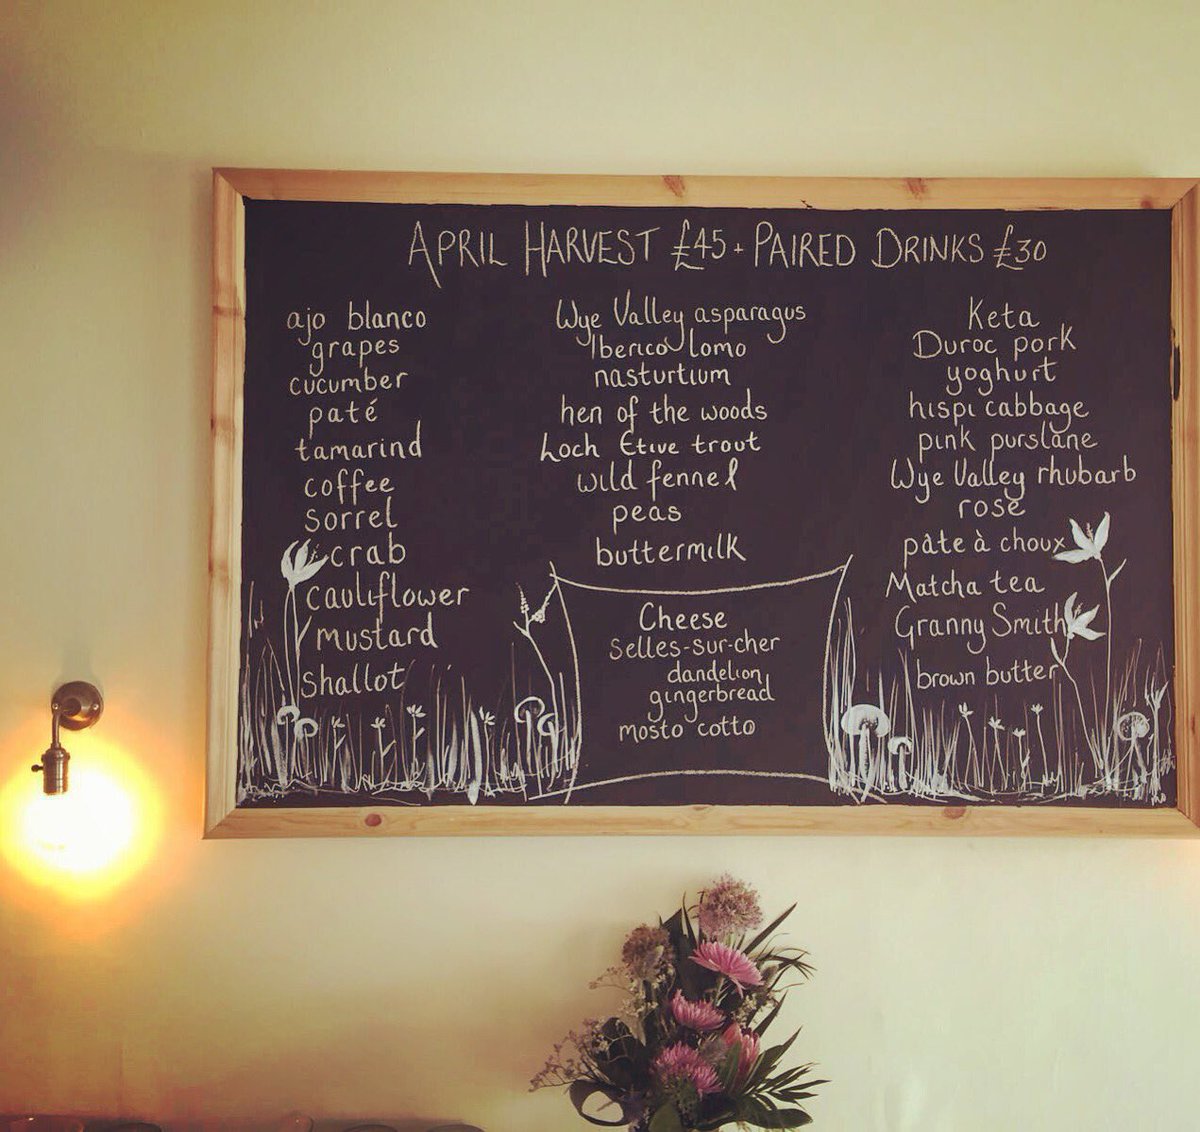 APRIL HARVEST £45 + PAIRED DRINKS £30
ajo blanco
grapes
cucumber
paté
tamarind
coffee
sorrel
crab
cauliflower
mustard
shallot
Wye Valley asparagus
Iberico lomo
nasturtium
hen of the woods
Loch Etive trout
wild fennel
peas
buttermilk
Cheese
Selles-sur-cher
dandelion
gingerbread
mosto cotto
Keta
Duroc pork
yoghurt
hispi cabbage
pink purslane
Wye Valley rhubarb
rose
pâte à choux
Matcha tea
Granny Smith
brown butter